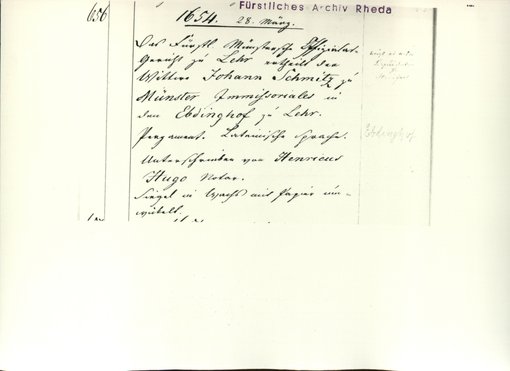 Fürstliches Archiv Rheda
656
1654.
28. März.
Das Fürstl. Münstersche Offizialat-
Gericht zu Lehr ertheilt der
Wittwe Johann Schmitz zu
Münster Immissoriales in
den Ebdinghof zu Lehr.
Pergament. Lateinische Sprache.
Unterschrieben von Henricus
Hugo Notar.
Siegel in Wachs mit Papier um-
wickelt.
Ebdinghof